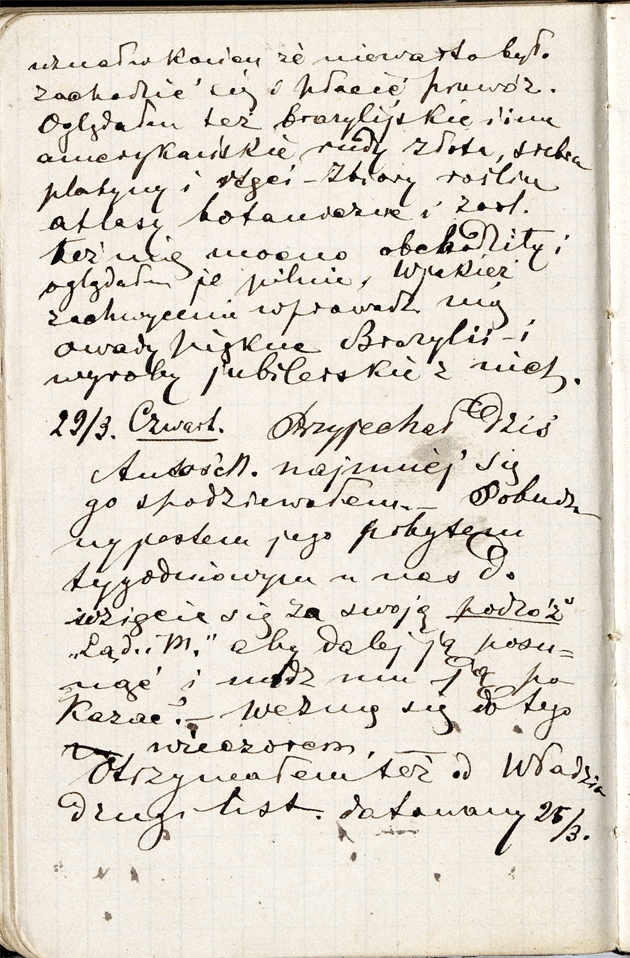 w końcu że niewarto był.
zachodzić się i płacić przewóz.
Oglądałem też brazylijskie i inne
amerykańskie rudy złota, srebra
platyny i rtęci – Zbiory roślin
atlasy botaniczne i zool.
też mię mocno obchodziły i
oglądałem je pilnie, W jakież
zachwycenie wprowadz. mię
owady piękne Brazylii – i
wyroby jubilerskie z nich.
29/3. Czwart. Przyjechał dziś
Antoś. najmniej się
go spodziewałem. – Pobudz
ny jestem jego pobytem
tygodniowym u nas do
wzięcia się za swoją podróż
"Ląd. i M." aby dalej ją posu=
nąć i módz mu ją po
kazać. – Wezmę się do tego
wieczorem.
Otrzymałem też od Władzia
drugi list. datowany 25/3.